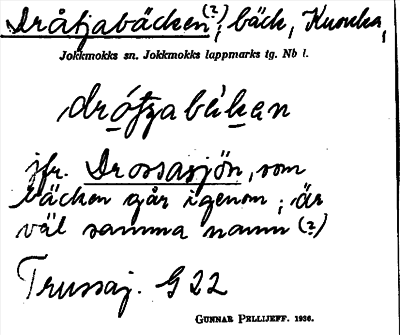 Dråtjabäcken(?), bäck, Kuouka,
Jokkmokks sn. Jokkmokks lappmarks tg. Nb l.
drótzabèkan
jfr. Drossasjön, som
bäcken går igenom; är
väl samma namn (?)
Trussaj. G 22
GUNNAR PELLIJEFF. 1936.